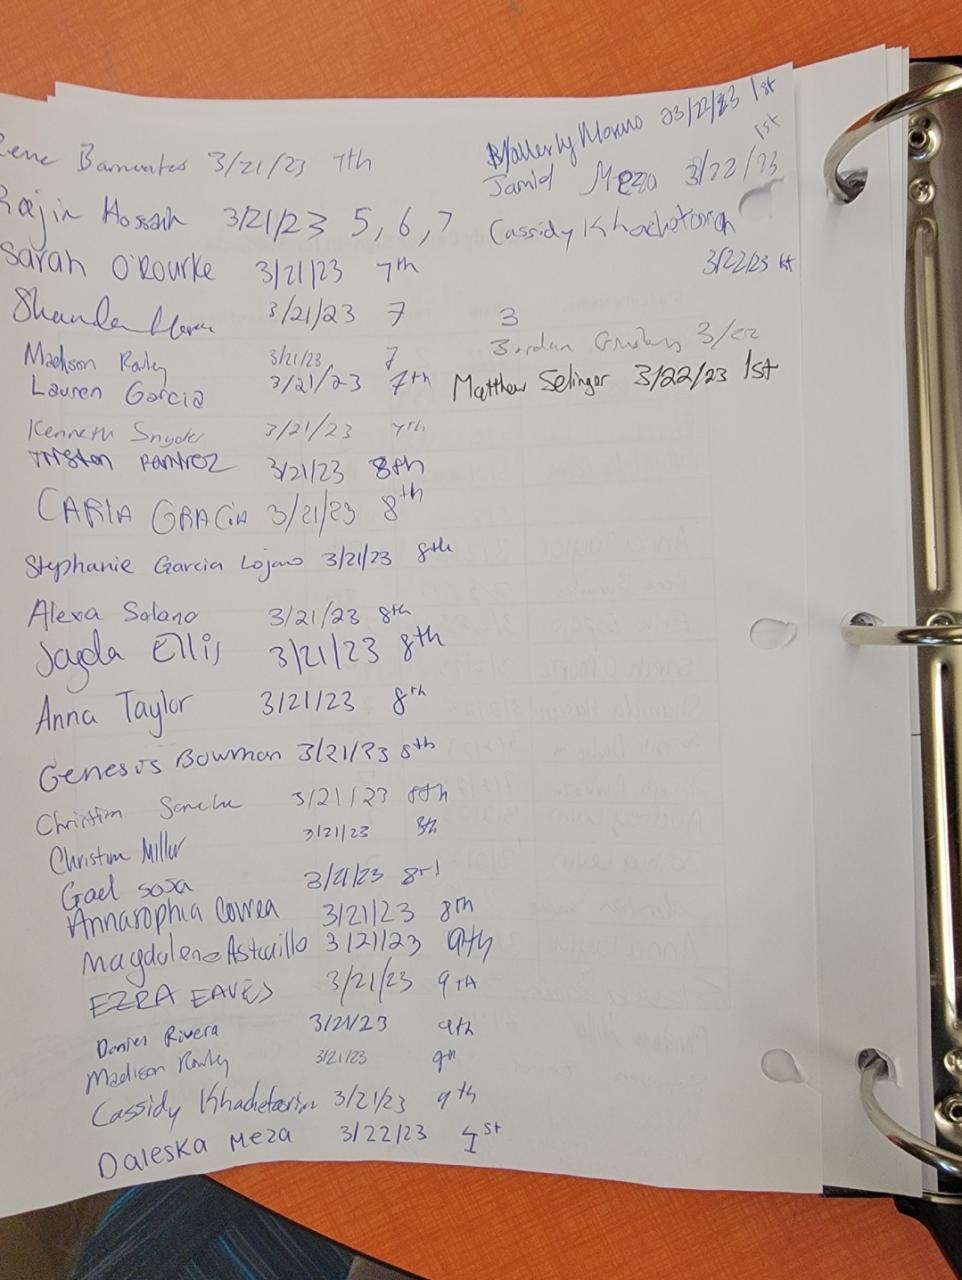 Rene Barrientos 3/21/23 7th
Rajin Hossain 3/21/23 5, 6, 7
Sarah O'Rourke 3/21/23 7th
3/21/23 7
Madison Rowley 3/21/23 7
Lauren Garcia 3/21/23 7th
Kenneth Snyder 3/21/23 7th
Tristen Ramirez 3/21/23 8th
CARLA GRACiA 3/21/23 8th
Stephanie Garcia Lojano 3/21/23 8th
Alexa Solano 3/21/23 8th
Jayda Ellis 3/21/23 8th
Anna Taylor 3/21/23 8th
Genesis Bowman 3/21/23 8th
Christian 3/21/23 8th
Christian Miller 3/21/23 8th
Gael sosa 3/21/23 8rd
Annasophia Correa 3/21/23 8th
Magdaleno Astudillo 3/21/23 9th
EZRA EAVES 3/21/23 9th
Daniel Rivera 3/21/23 9th
Madison Rowley 3/21/23 9th
Cassidy Khachetoorian 3/21/23 9th
Daleska Meza 3/22/23 1st
Moreno 03/22/23 1st
Jamid Meza 3/22/23 1st
Cassidy Khachetoorian
3/22/23 1st
3
Jordan 3/22
Matthew Selinger 3/22/23 1st